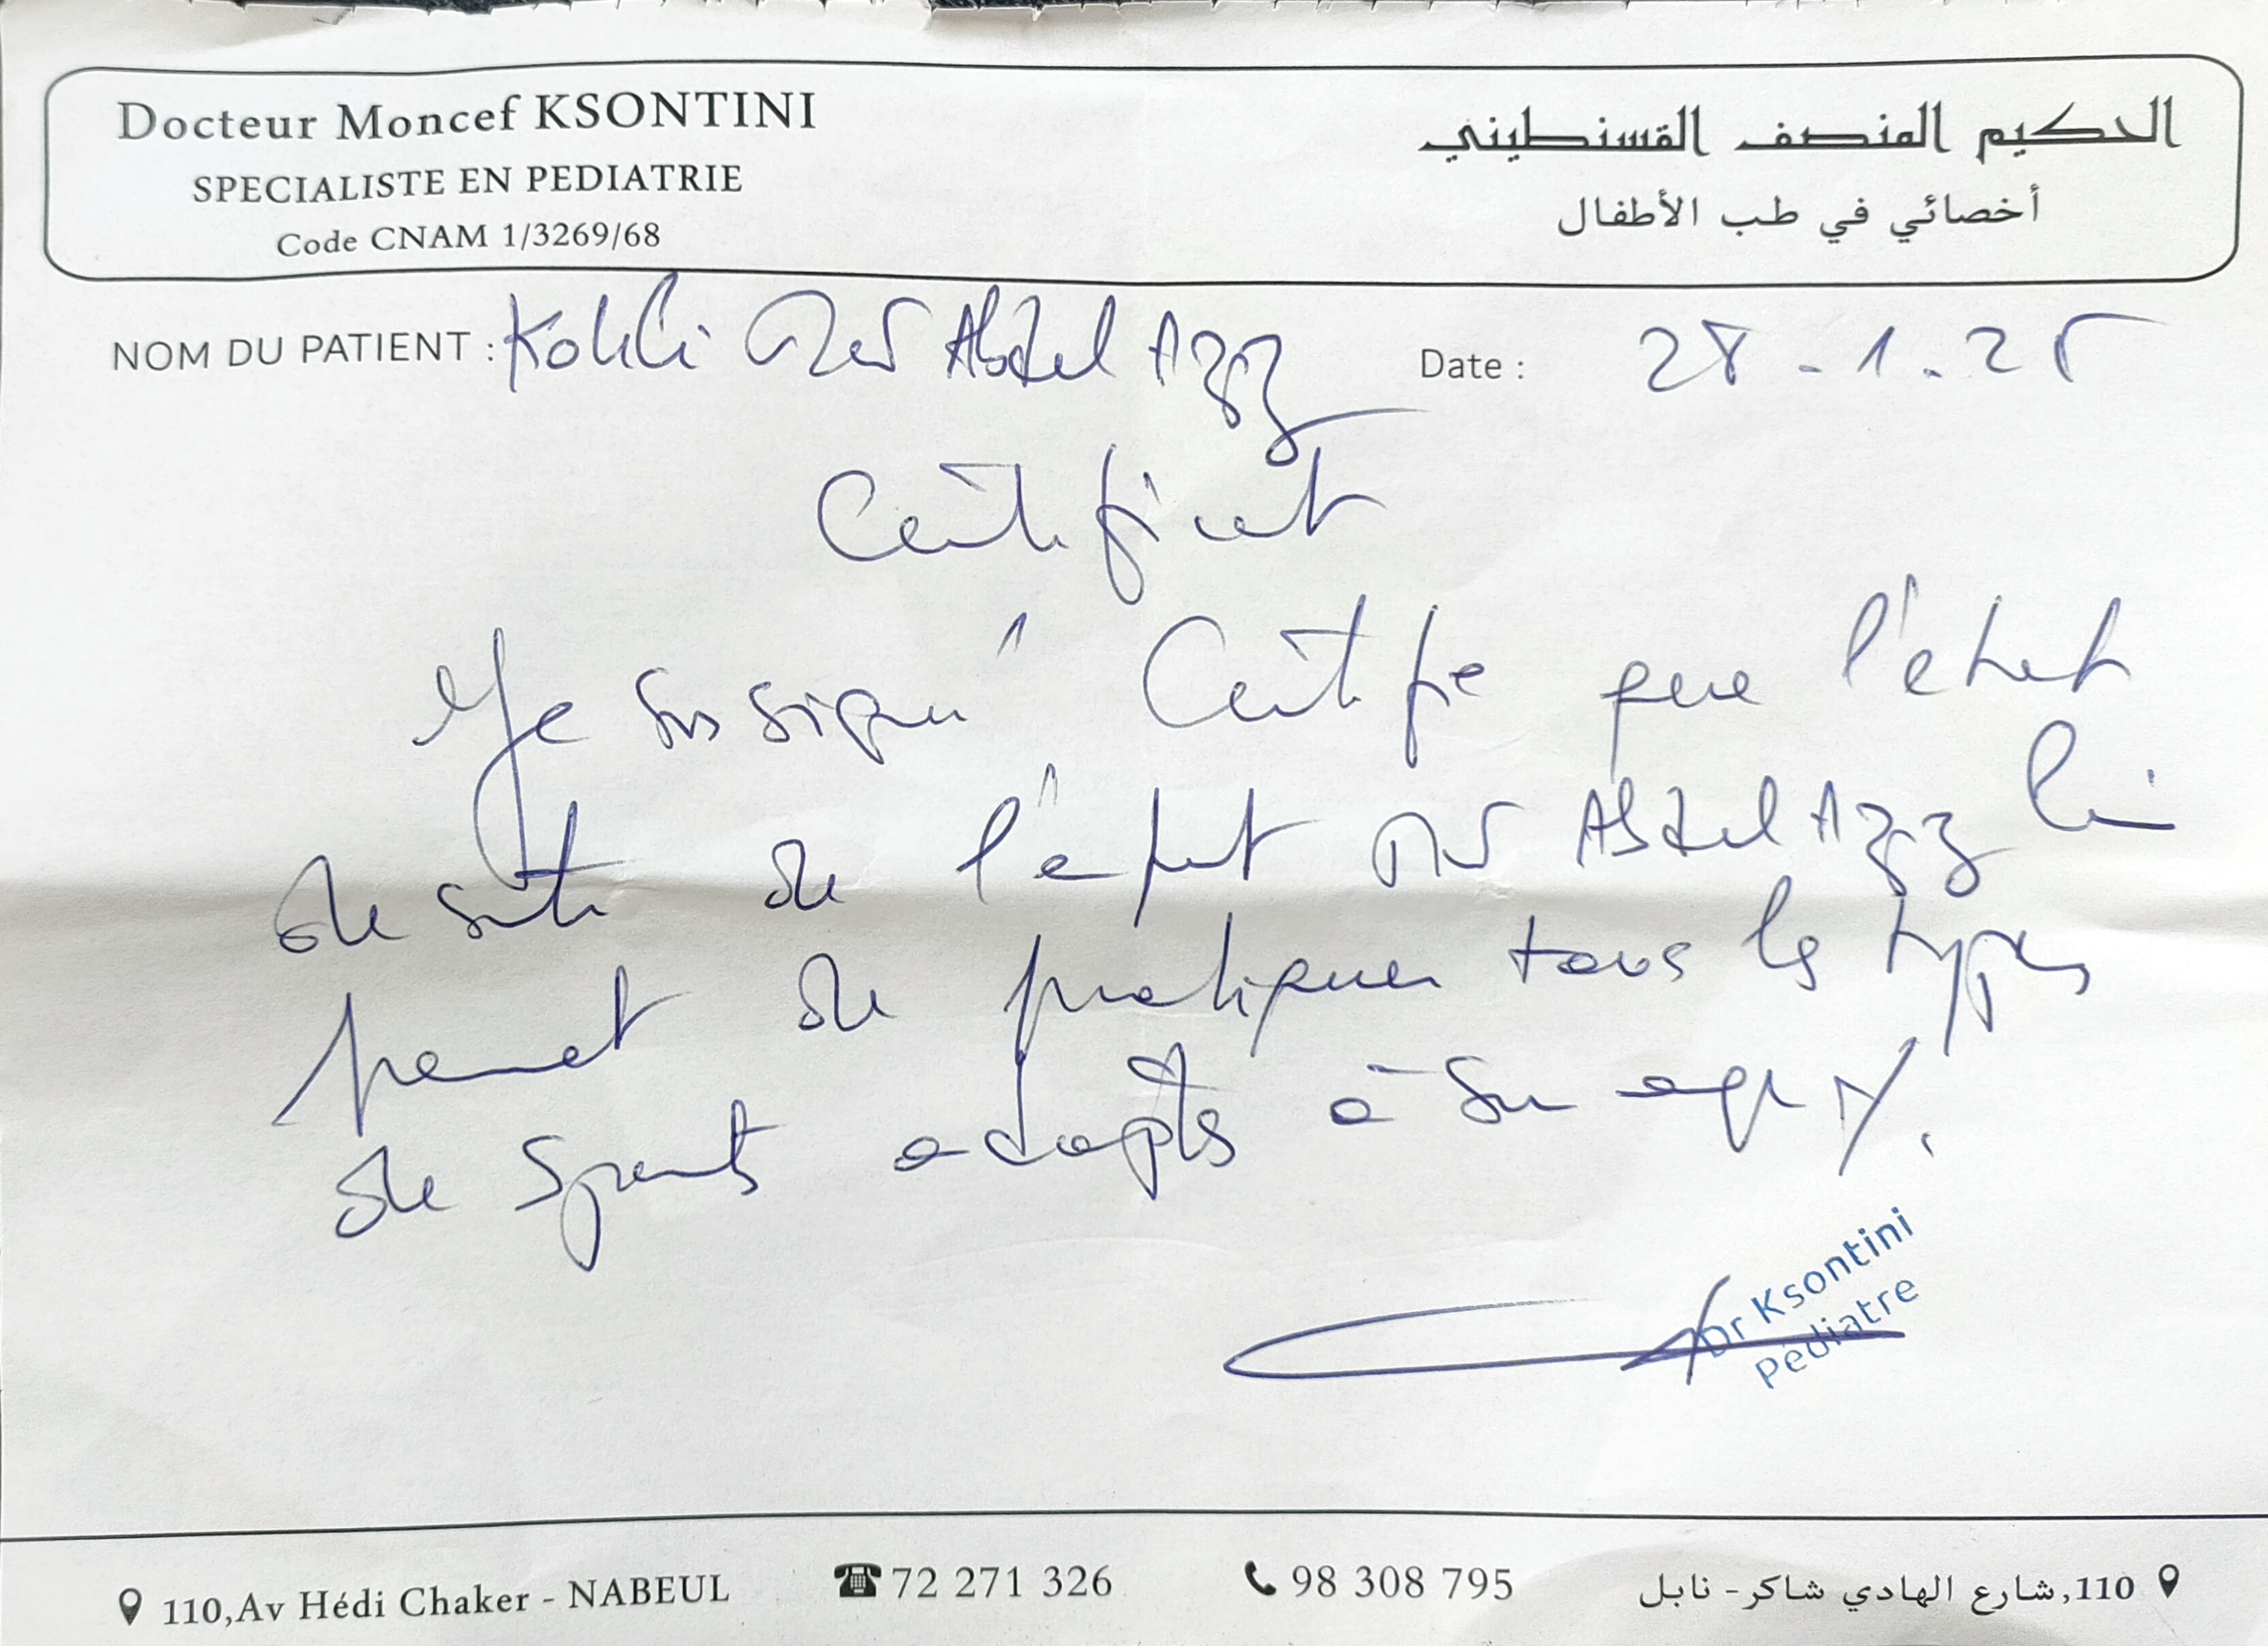 Docteur Moncef KSONTINI
SPECIALISTE EN PEDIATRIE
Code CNAM 1/3269/68
الحكيم المنصف القسنطيني
أخصائي في طب الأطفال
NOM DU PATIENT : Abdel Aziz
Date : 28-1-25
Certificat
Je soussigné Certifie que l'état
de santé de l'enfant Abdel Aziz lui
permet de pratiquer tous les types
de sports adaptés à son age
Dr Ksontini
Pédiatre
110,Av Hédi Chaker - NABEUL
72 271 326
98 308 795
110, شارع الهادي شاكر - نابل